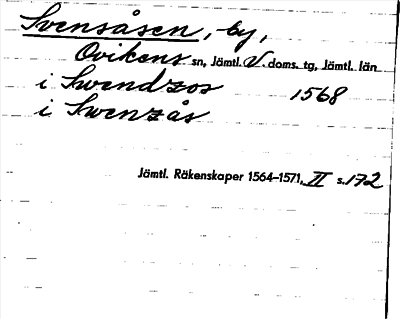 Svensåsen, by,
Ovikens sn, Jämtl. V. doms. tg, Jämtl. län
i Swendzos 1568
i Swenzås
Jämtl. Räkenskaper 1564–1571, II s. 172